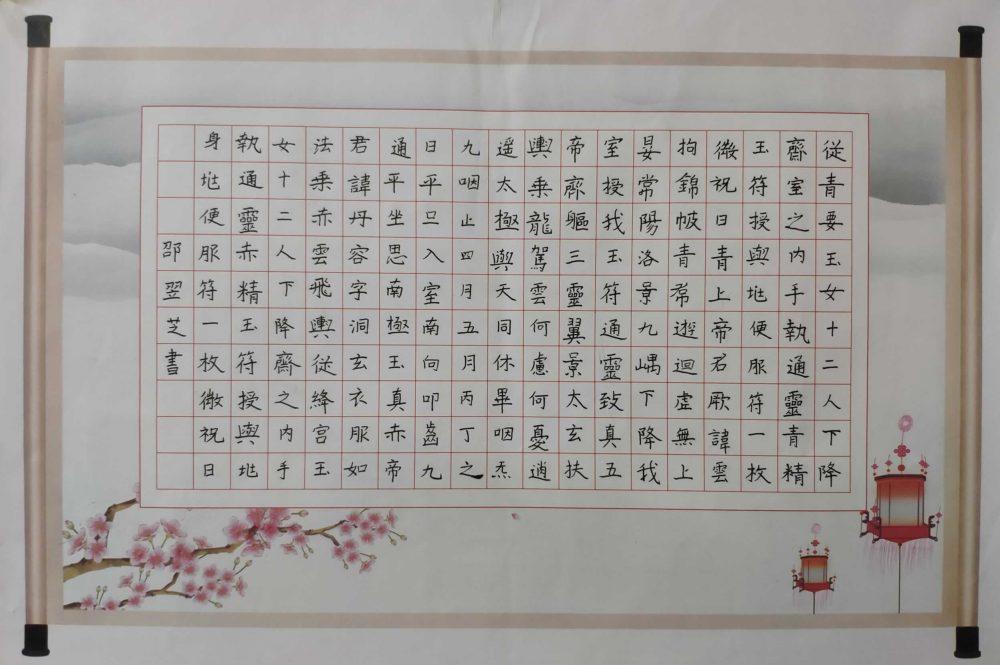 從青要玉女十二人下降
齋室之内手執通靈青精
玉符授與㘴便服符一枚
微祝曰青上帝君厥諱雲
拘錦帔青希遊迴虛無上
晏常陽洛景九嵎下降我
室授我玉符通靈致真五
帝齋軀三靈翼景太玄扶
輿乘龍駕雲何慮何憂逍
遥太極與天同休畢咽炁
九咽止四月五月丙丁之
日平旦入室南向叩齒九
通平坐思南極玉真赤帝
君諱丹容字洞玄衣服如
法乘赤雲飛輿從絳宮玉
女十二人下降齋之内手
執通靈赤精玉符授與㘴
身㘴便服符一枚微祝曰
邵翌芝書